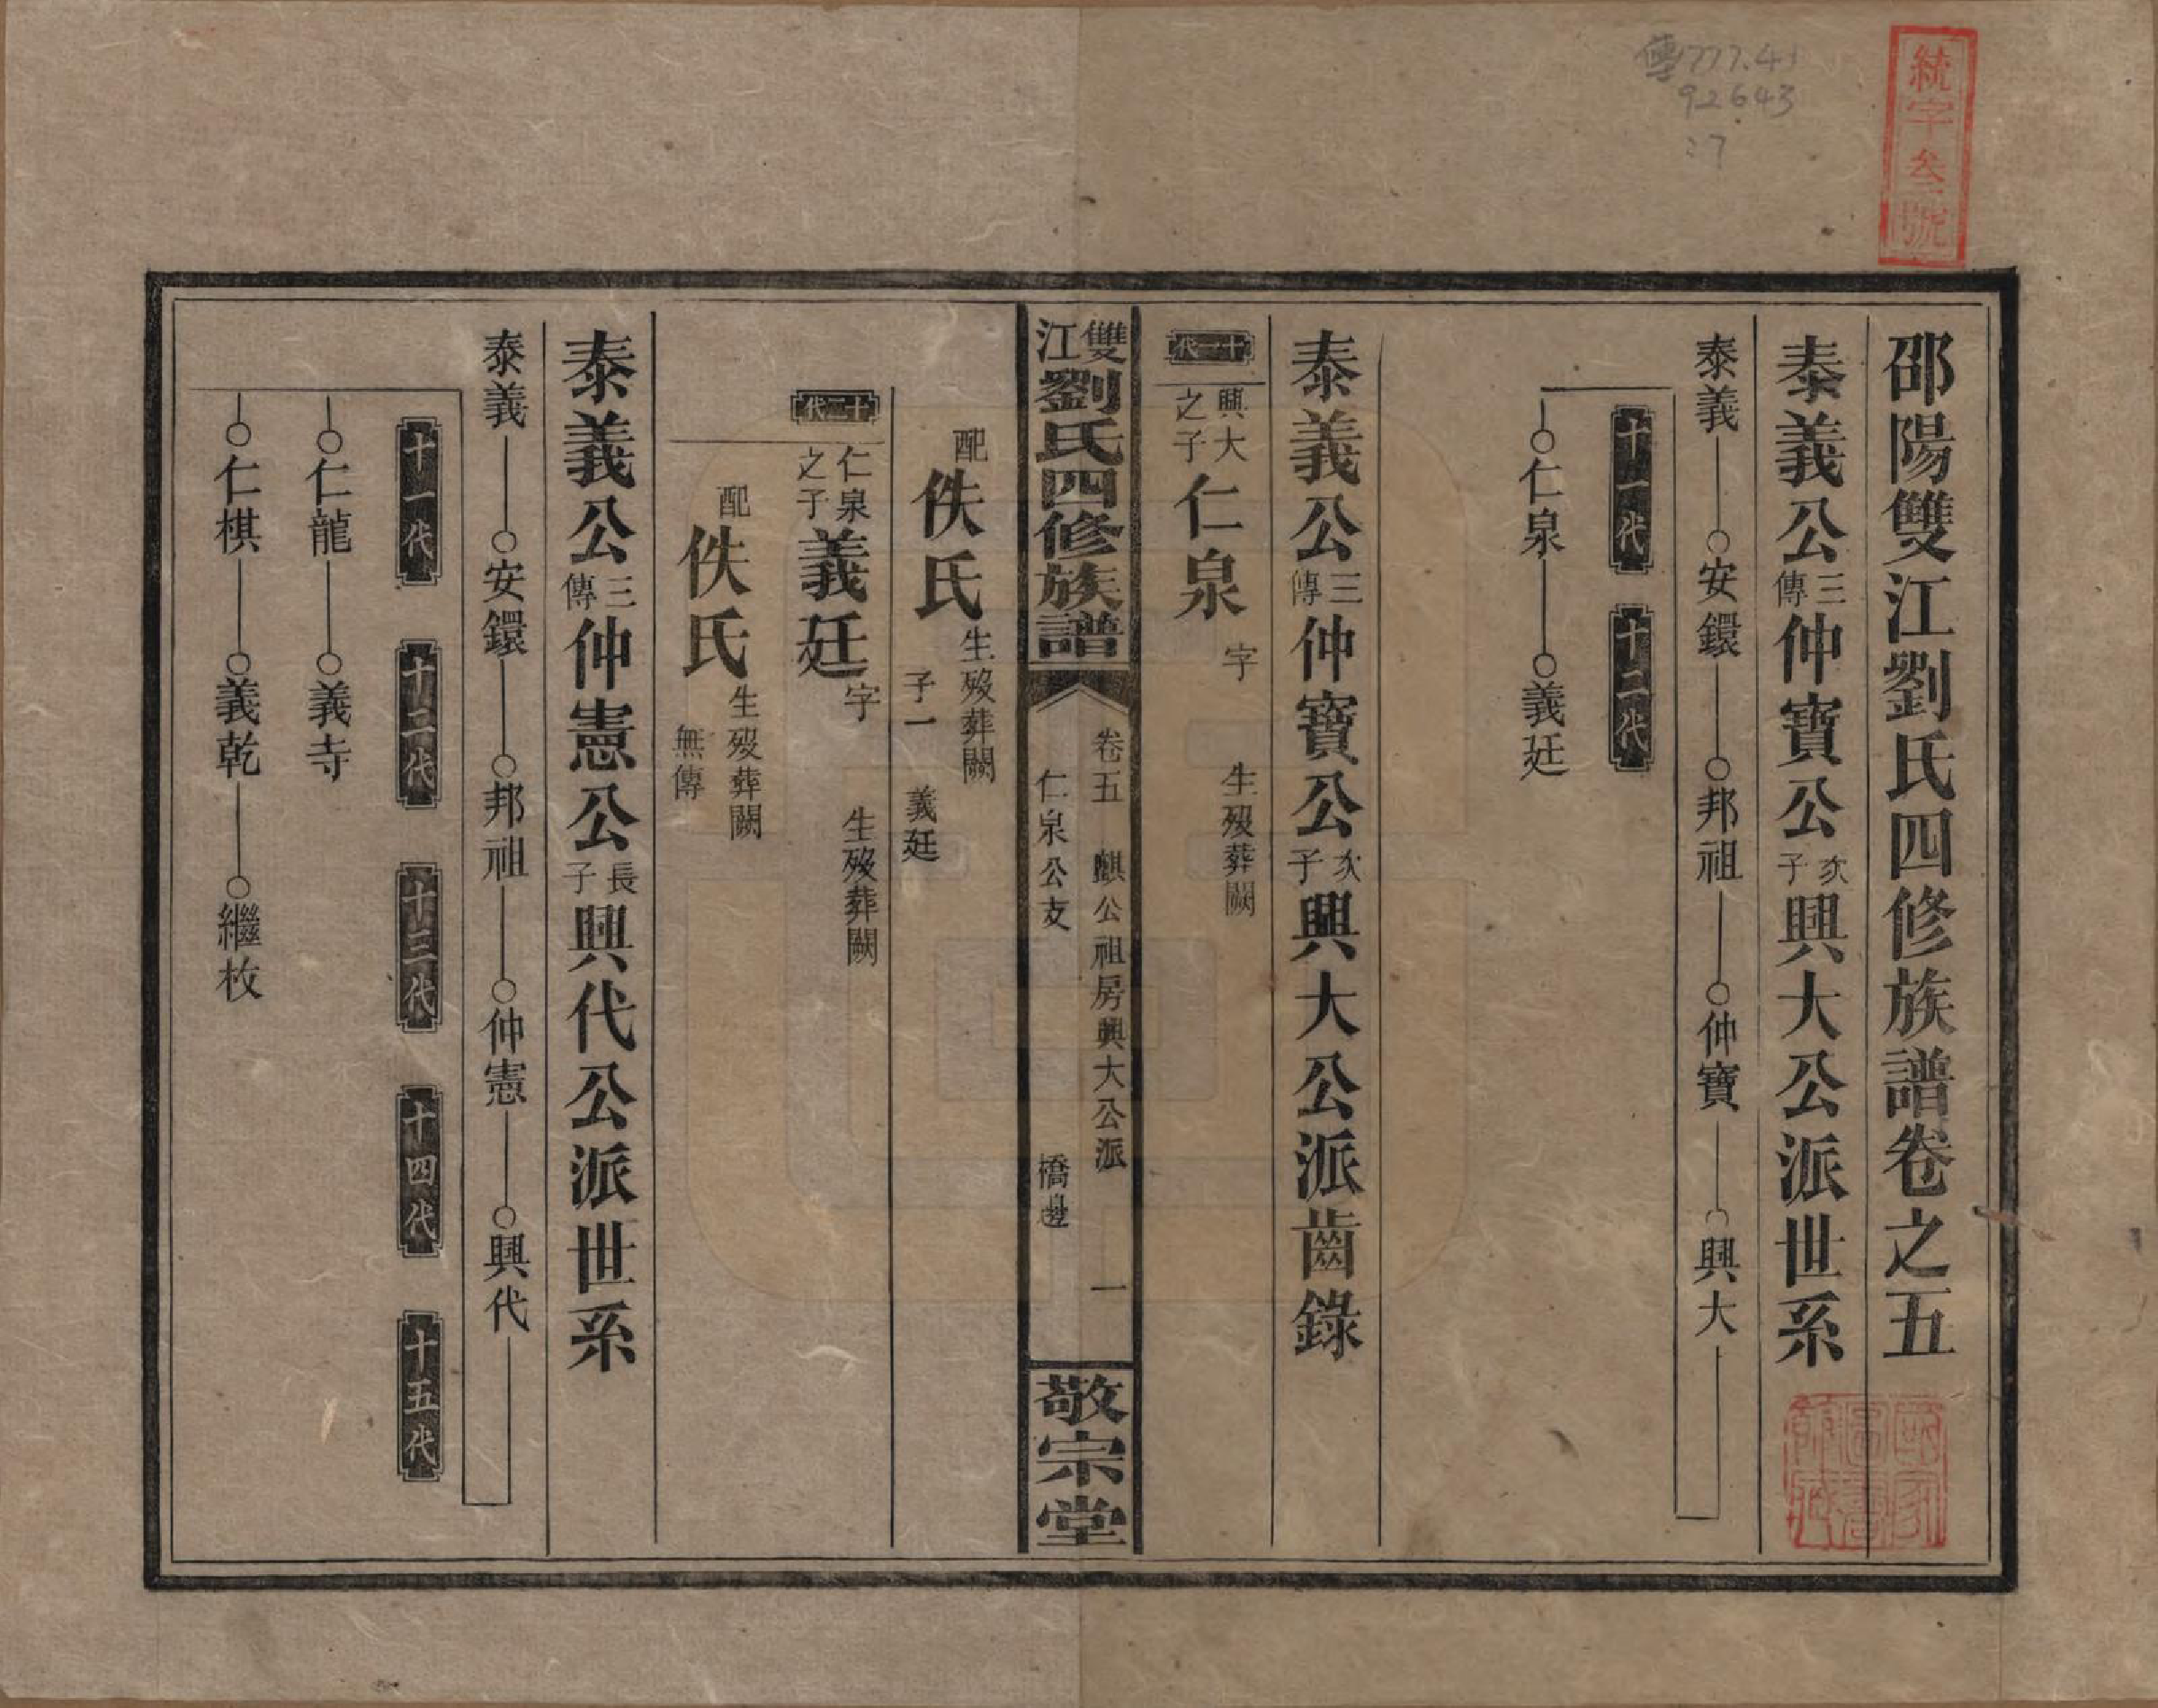 傳777.41
92643
:7
統字叁號
邵陽雙江劉氏四修族譜卷之五
泰義公三傳仲寶公次子興大公派世系
泰義 安鐶 邦祖 仲寶 興大
十一代 十二代
仁泉 義廷
泰義公三傳仲寶公次子興大公派齒錄
十一代 興大之子 仁泉 字 生歿葬闕
雙江劉氏四修族譜 卷五 麒公祖房興大公派 一 敬宗堂
仁泉公支 橋邊
配佚氏 生歿葬闕
子一 義廷
十二代 仁泉之子 義廷 字 生歿葬闕
配佚氏 生歿葬闕
無傳
泰義公三傳仲憲公長子興代公派世系
泰義 安鐶 邦祖 仲憲 興代
十一代 十二代 十三代 十四代 十五代
仁龍 義寺
仁棋 義乾 繼枚